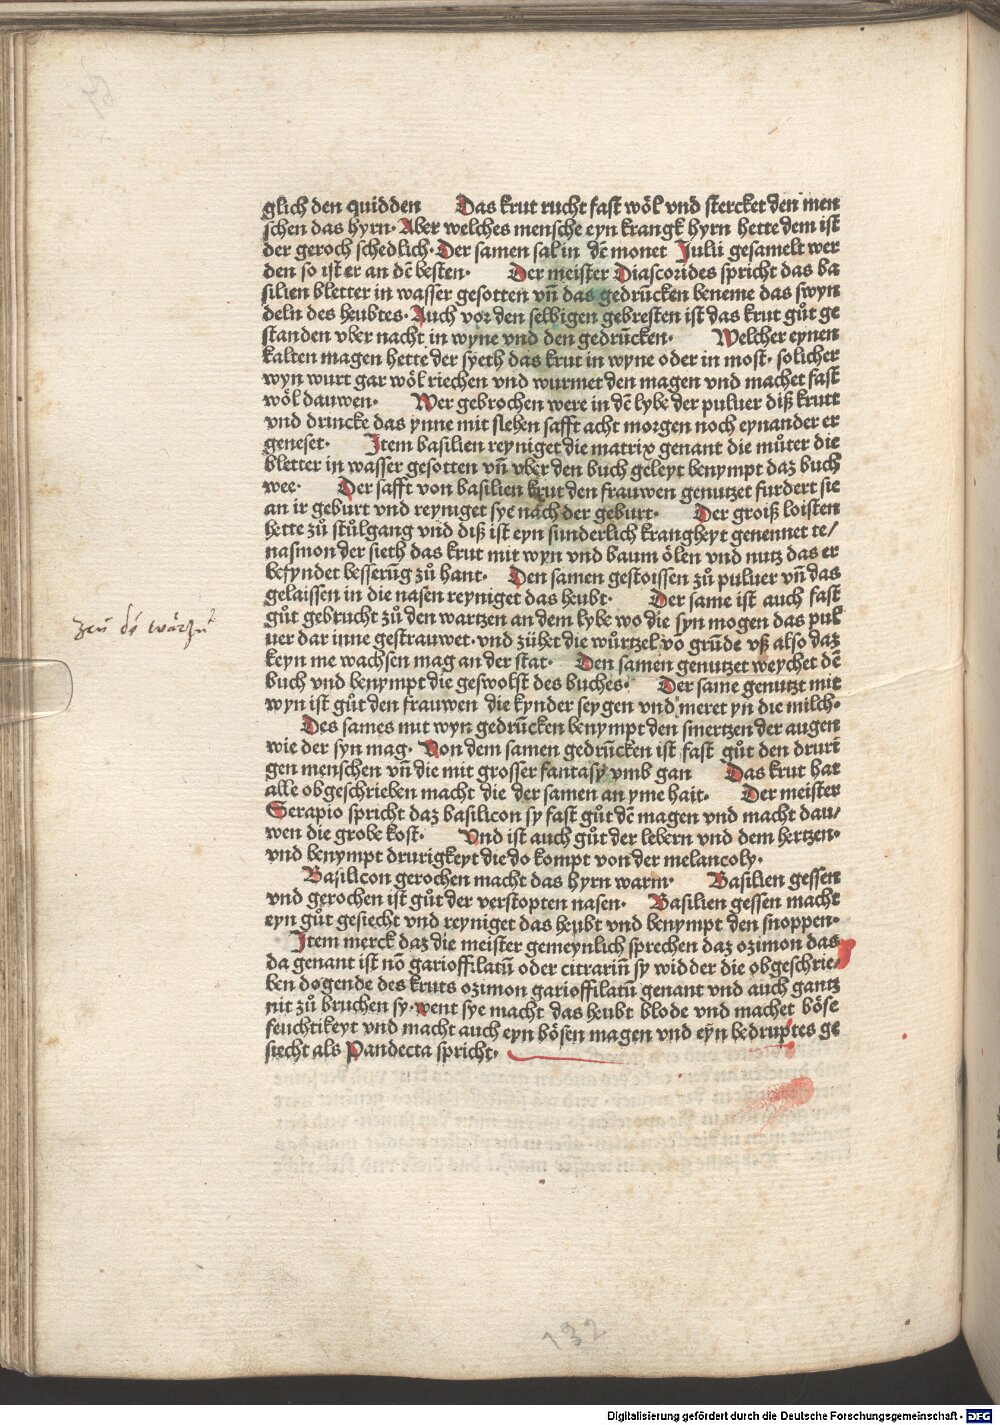 glich den quidden Das krut rucht fast wöl vnd stercket den men
schen das hyrn. Aber welches mensche eyn krangk hyrn hette dem ist
der geroch schedlich. Der samen sal in dē monet Julii gesamelt wer
den so ist er an dē besten. Der meister Diascorides spricht das ba
silien bletter in wasser gesotten vñ das gedrūcken beneme das swyn
deln des heubtes. Auch vor den selbigen gebresten ist das krut gůt ge
standen vber nacht in wyne vnd den gedrūcken. Welcher eynen
kalten magen hette der syeth das krut in wyne oder in most. solicher
wyn wurt gar wöl riechen vnd wurmet den magen vnd machet fast
wöl dauwen. Wer gebrochen were in dē lybe der puluer diß krutt
vnd drincke das ynne mit slehen safft acht morgen noch eynander er
geneset. Item basilien reyniget die matrix genant die můter die
bletter in wasser gesotten vñ vber den buch geleyt benympt daz buch
wee. Der safft von basilien krut den frauwen genutzet furdert sie
an ir geburt vnd reyniget sye nach der geburt. Der groiß loisten
hette zů stůlgang vnd diß ist eyn sunderlich krangheyt genennet te/
nasmon der sieth das krut mit wyn vnd baum ölen vnd nutz das er
befyndet besserūg zů hant. Den samen gestoissen zů puluer vñ das
gelaissen in die nasen reyniget das heubt. Der same ist auch fast
gůt gebrucht zů den wartzen an dem lybe wo die syn mogen das pul
uer dar inne gestrauwet. vnd zühet die wůrtzel vō grūde vß also daz
keyn me wachsen mag an der stat. Den samen genutzet weychet dē
buch vnd benympt die geswolst des buches. Der same genutzt mit
wyn ist gůt den frauwen die kynder seygen vnd meret yn die milch.
Des sames mit wyn gedrūcken benympt den smertzen der augen
wie der syn mag. Von dem samen gedrūcken ist fast gůt den druri
gen menschen vñ die mit grosser fantasy vmb gan Das krut hat
alle obgeschrieben macht die der samen an yme hait. Der meister
Serapio spricht daz basilicon sy fast gůt dē magen vnd macht dau/
wen die grobe kost. Vnd ist auch gůt der lebern vnd dem hertzen.
vnd benympt drurigkeyt die do kompt von der melancoly.
Basilicon gerochen macht das hyrn warm. Basilien gessen
vnd gerochen ist gůt der verstopten nasen. Basilien gessen macht
eyn gůt gesiecht vnd reyniget das heubt vnd benympt den snoppen.
Item merck daz die meister gemeynlich sprechen daz ozimon das
da genant ist nō garioffilatū oder citrariū sy widder die obgeschrie/
ben dogende des kruts ozimon garioffilatū genant vnd auch gantz
nit zů bruchen sy. went sye macht das heubt blode vnd machet böse
feuchtikeyt vnd macht auch eyn bösen magen vnd eyn bedruptes ge
siecht als Pandecta spricht.
132
Digitalisierung gefördert durch die Deutsche Forschungsgemeinschaft - DFG